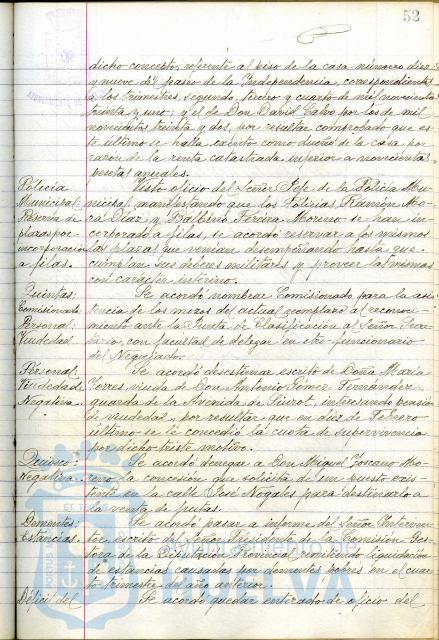 52
dicho concepto, referente al piso de la casa número diez
y nueve del paseo de la Independencia, correspondientes
a los trimestres, segundo, tercero y cuarto de mil novecientos
treinta y uno; y el de Don David Calvo por los de mil
novecientos treinta y dos, por resultar comprobado que es-
te último se halla exento como dueño de la casa, por
razon de la renta catastrada inferior a novecientas
pesetas anuales.
Policia Municipal: Reserva de plazas por incorporación a filas.
Visto oficio del Señor Jefe de la Policia Mu-
nicipal, manifestando que los Policias Ramón Mo-
ra Diaz y Balbino Moreno se han in-
corporado a filas, se acordó reservar a los mismos
las plazas que venian desempeñando hasta que
cumplan sus deberes militares y proveer las mismas
con caracter interino.
Quintas: Comisionado.
Se acordó nombrar Comisionado para la asis-
tencia de los mozos del actual reemplazo al reconoci-
miento ante la Junta de Clasificación al Señor Secre-
tario, con facultad de delegar en otro funcionario
del Negociado.
Personal: Viudedad
Personal: Viudedad Negativa.
Se acordó desestimar escrito de Doña Maria
Torres, viuda de Don Antonio Gomez Fernández,
guarda de la Avenida de interesando pensión
de viudedad, por resultar que en diez de Febrero
último se le concedió la cuota de supervivencia
por dicho triste motivo.
Quiosco: Negativa.
Se acordó denegar a Don Miguel Toscano Mo-
reno la concesión que solicita de un puesto exis-
tente en la calle José Nogales para destinarlo a
la venta de frutas.
Dementes: Estancias.
Se acordó pasar a informe del Señor Interven-
tor, escrito del Señor Presidente de la Comisión Ges-
tora de la Diputación Provincial, remitiendo liquidación
de estancias causadas por dementes pobres en el cuar-
to trimestre del año anterior.
Déficit del
Se acordó quedar enterado de oficio del